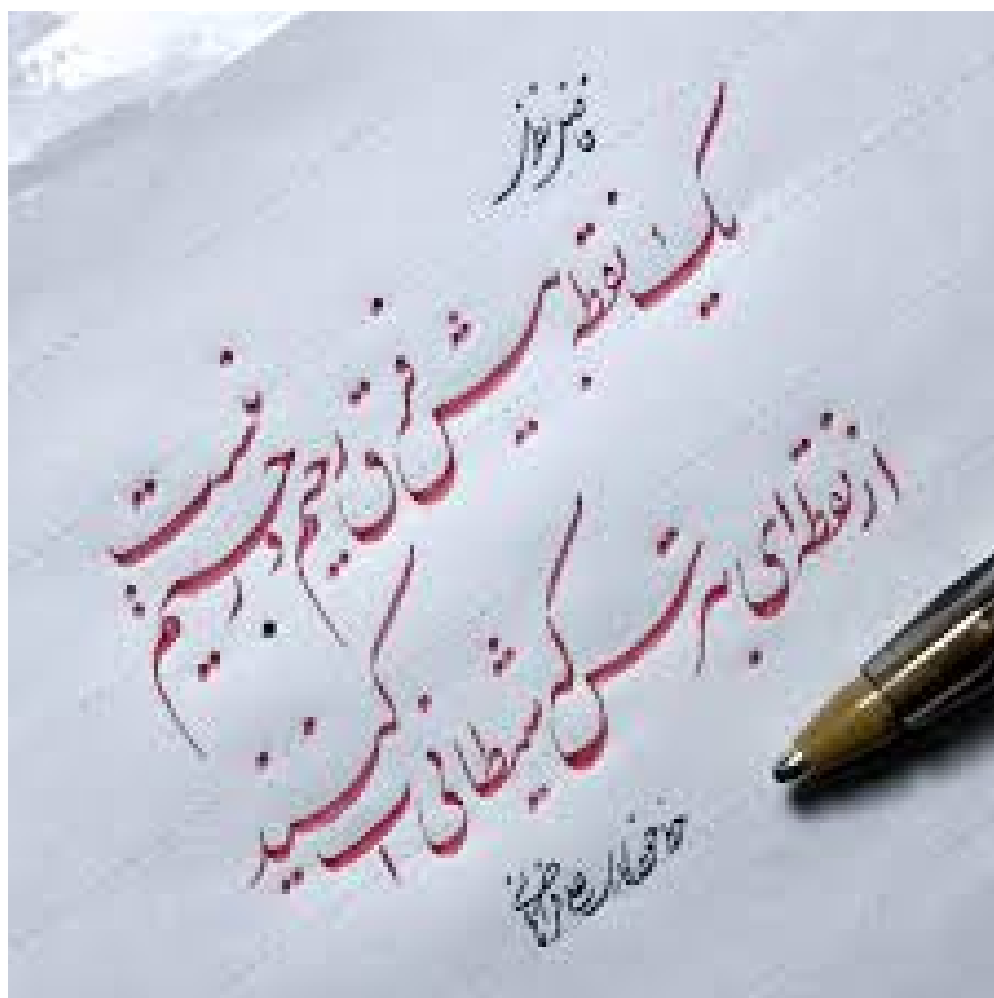 یک نقطه بیش فرق رحیم و رجیم نیست
از نقطه ای بترس که شیطانی ات کنند